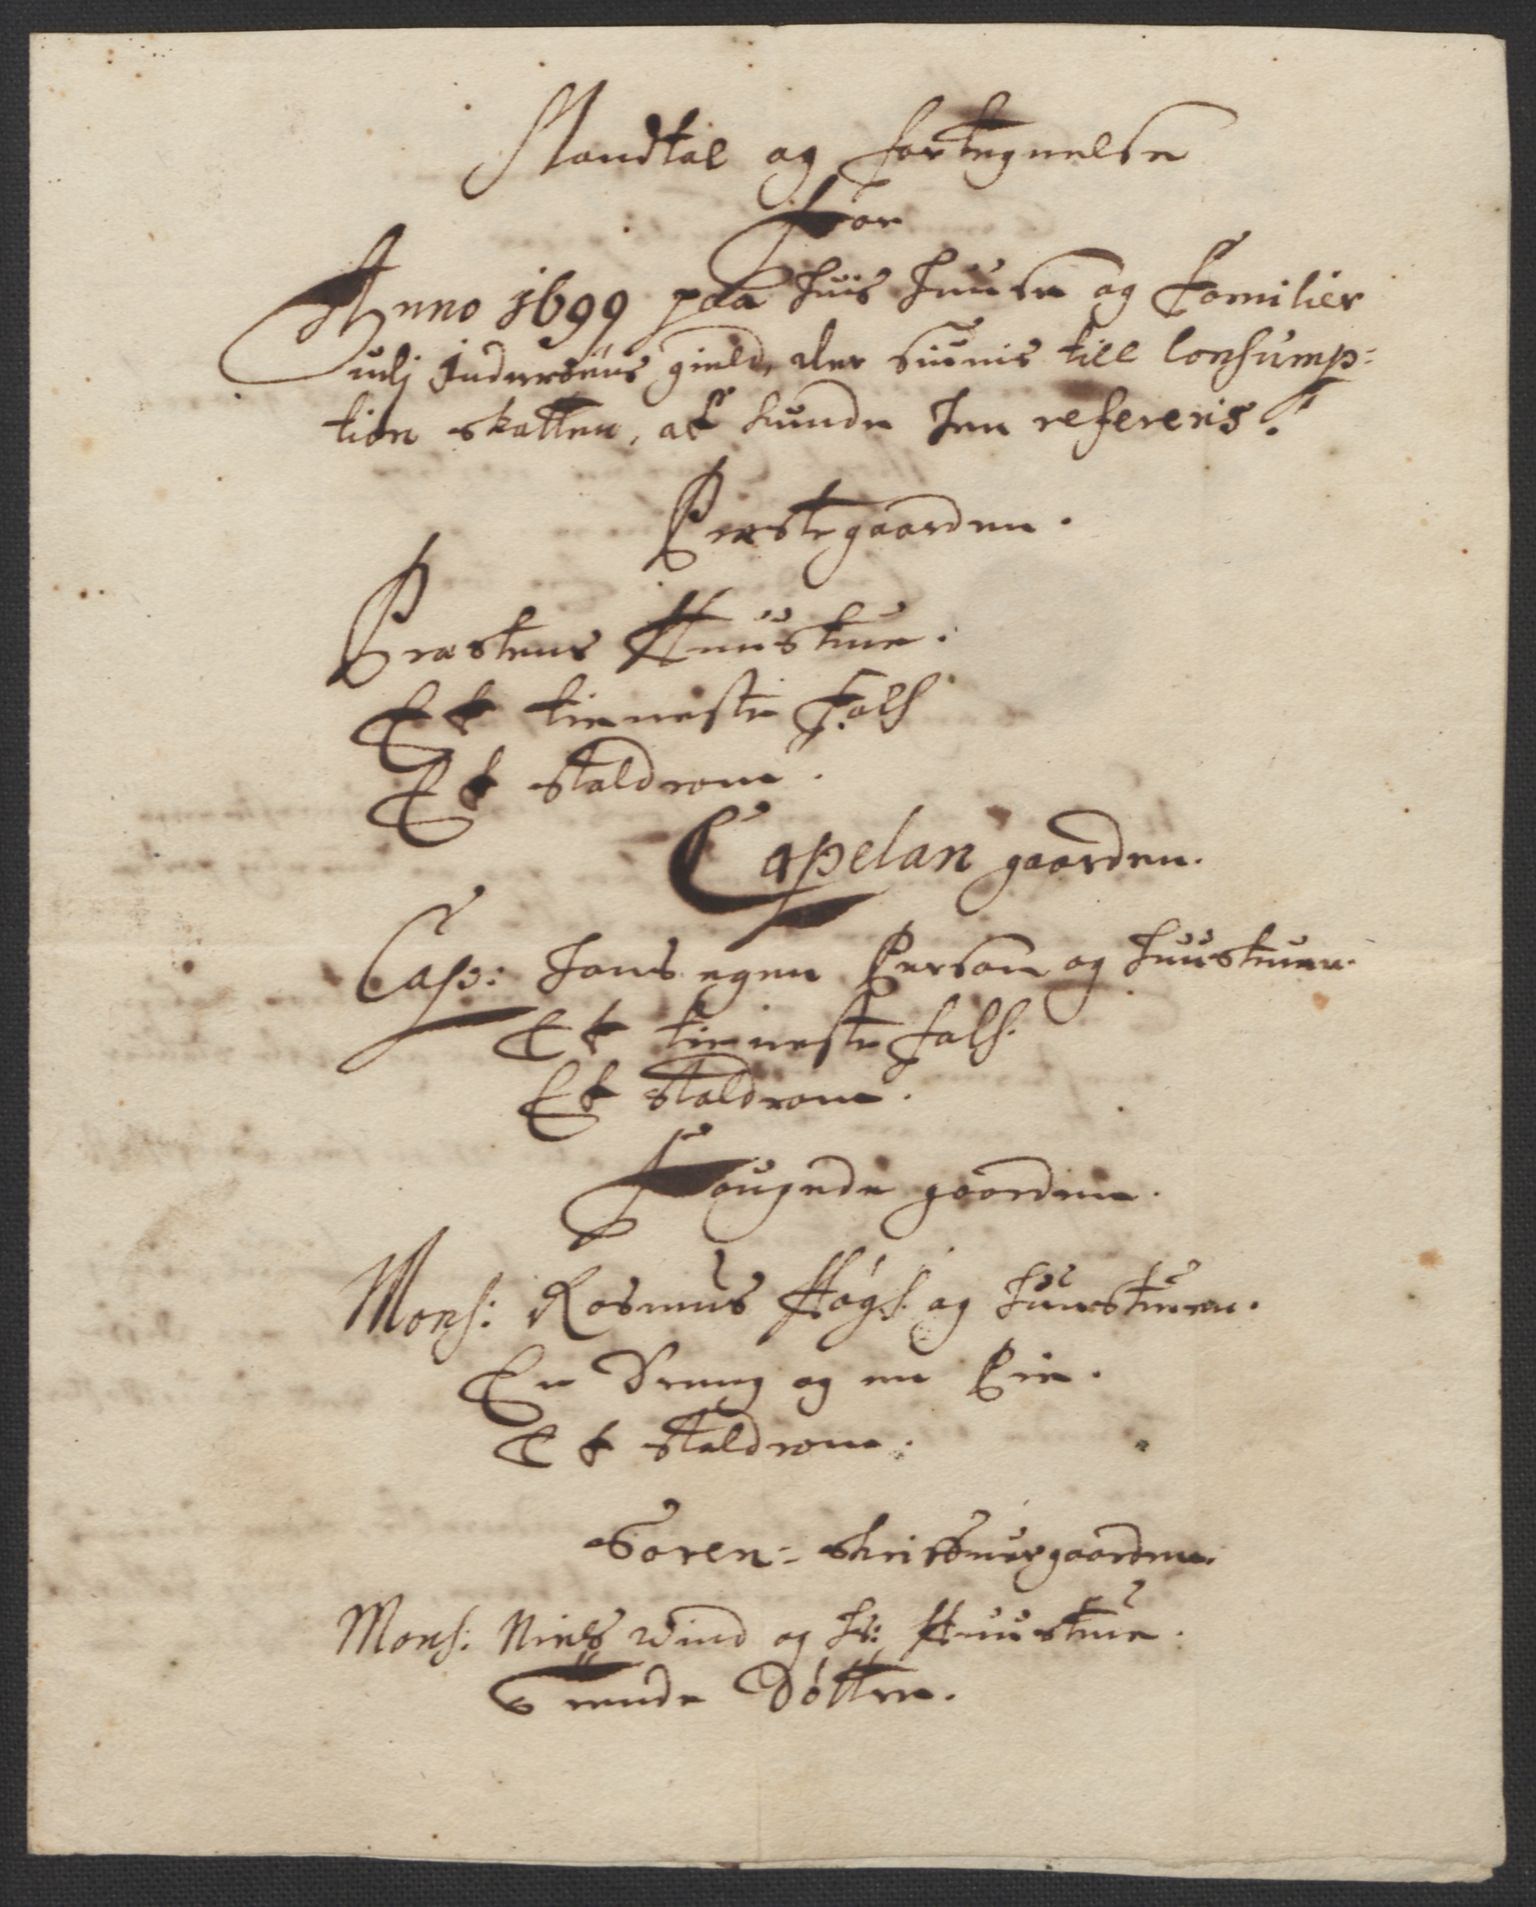 Mandtal og fortegnelse
For
Anno 1699 paa huis huuse og Familier
udj Inderøens gield, der siunis till Consump-
tion skatten, at kunde hen refereris.
Præstegaarden.
Præstens Huustrue.
Et tienneste Folch
Et staldrom.
Capelan gaarden.
Cap: hans egen Person og huustruen.
Et tienneste folch.
Et staldrom.
Fougede gaarden.
Mons: Rasmus Høgh og huustruen.
En Dreng og en Pie.
Et staldrom.
Soren-skrifver gaarden.
Mons: Niels Wind og hs: Huustrue.
Trende Døttre.